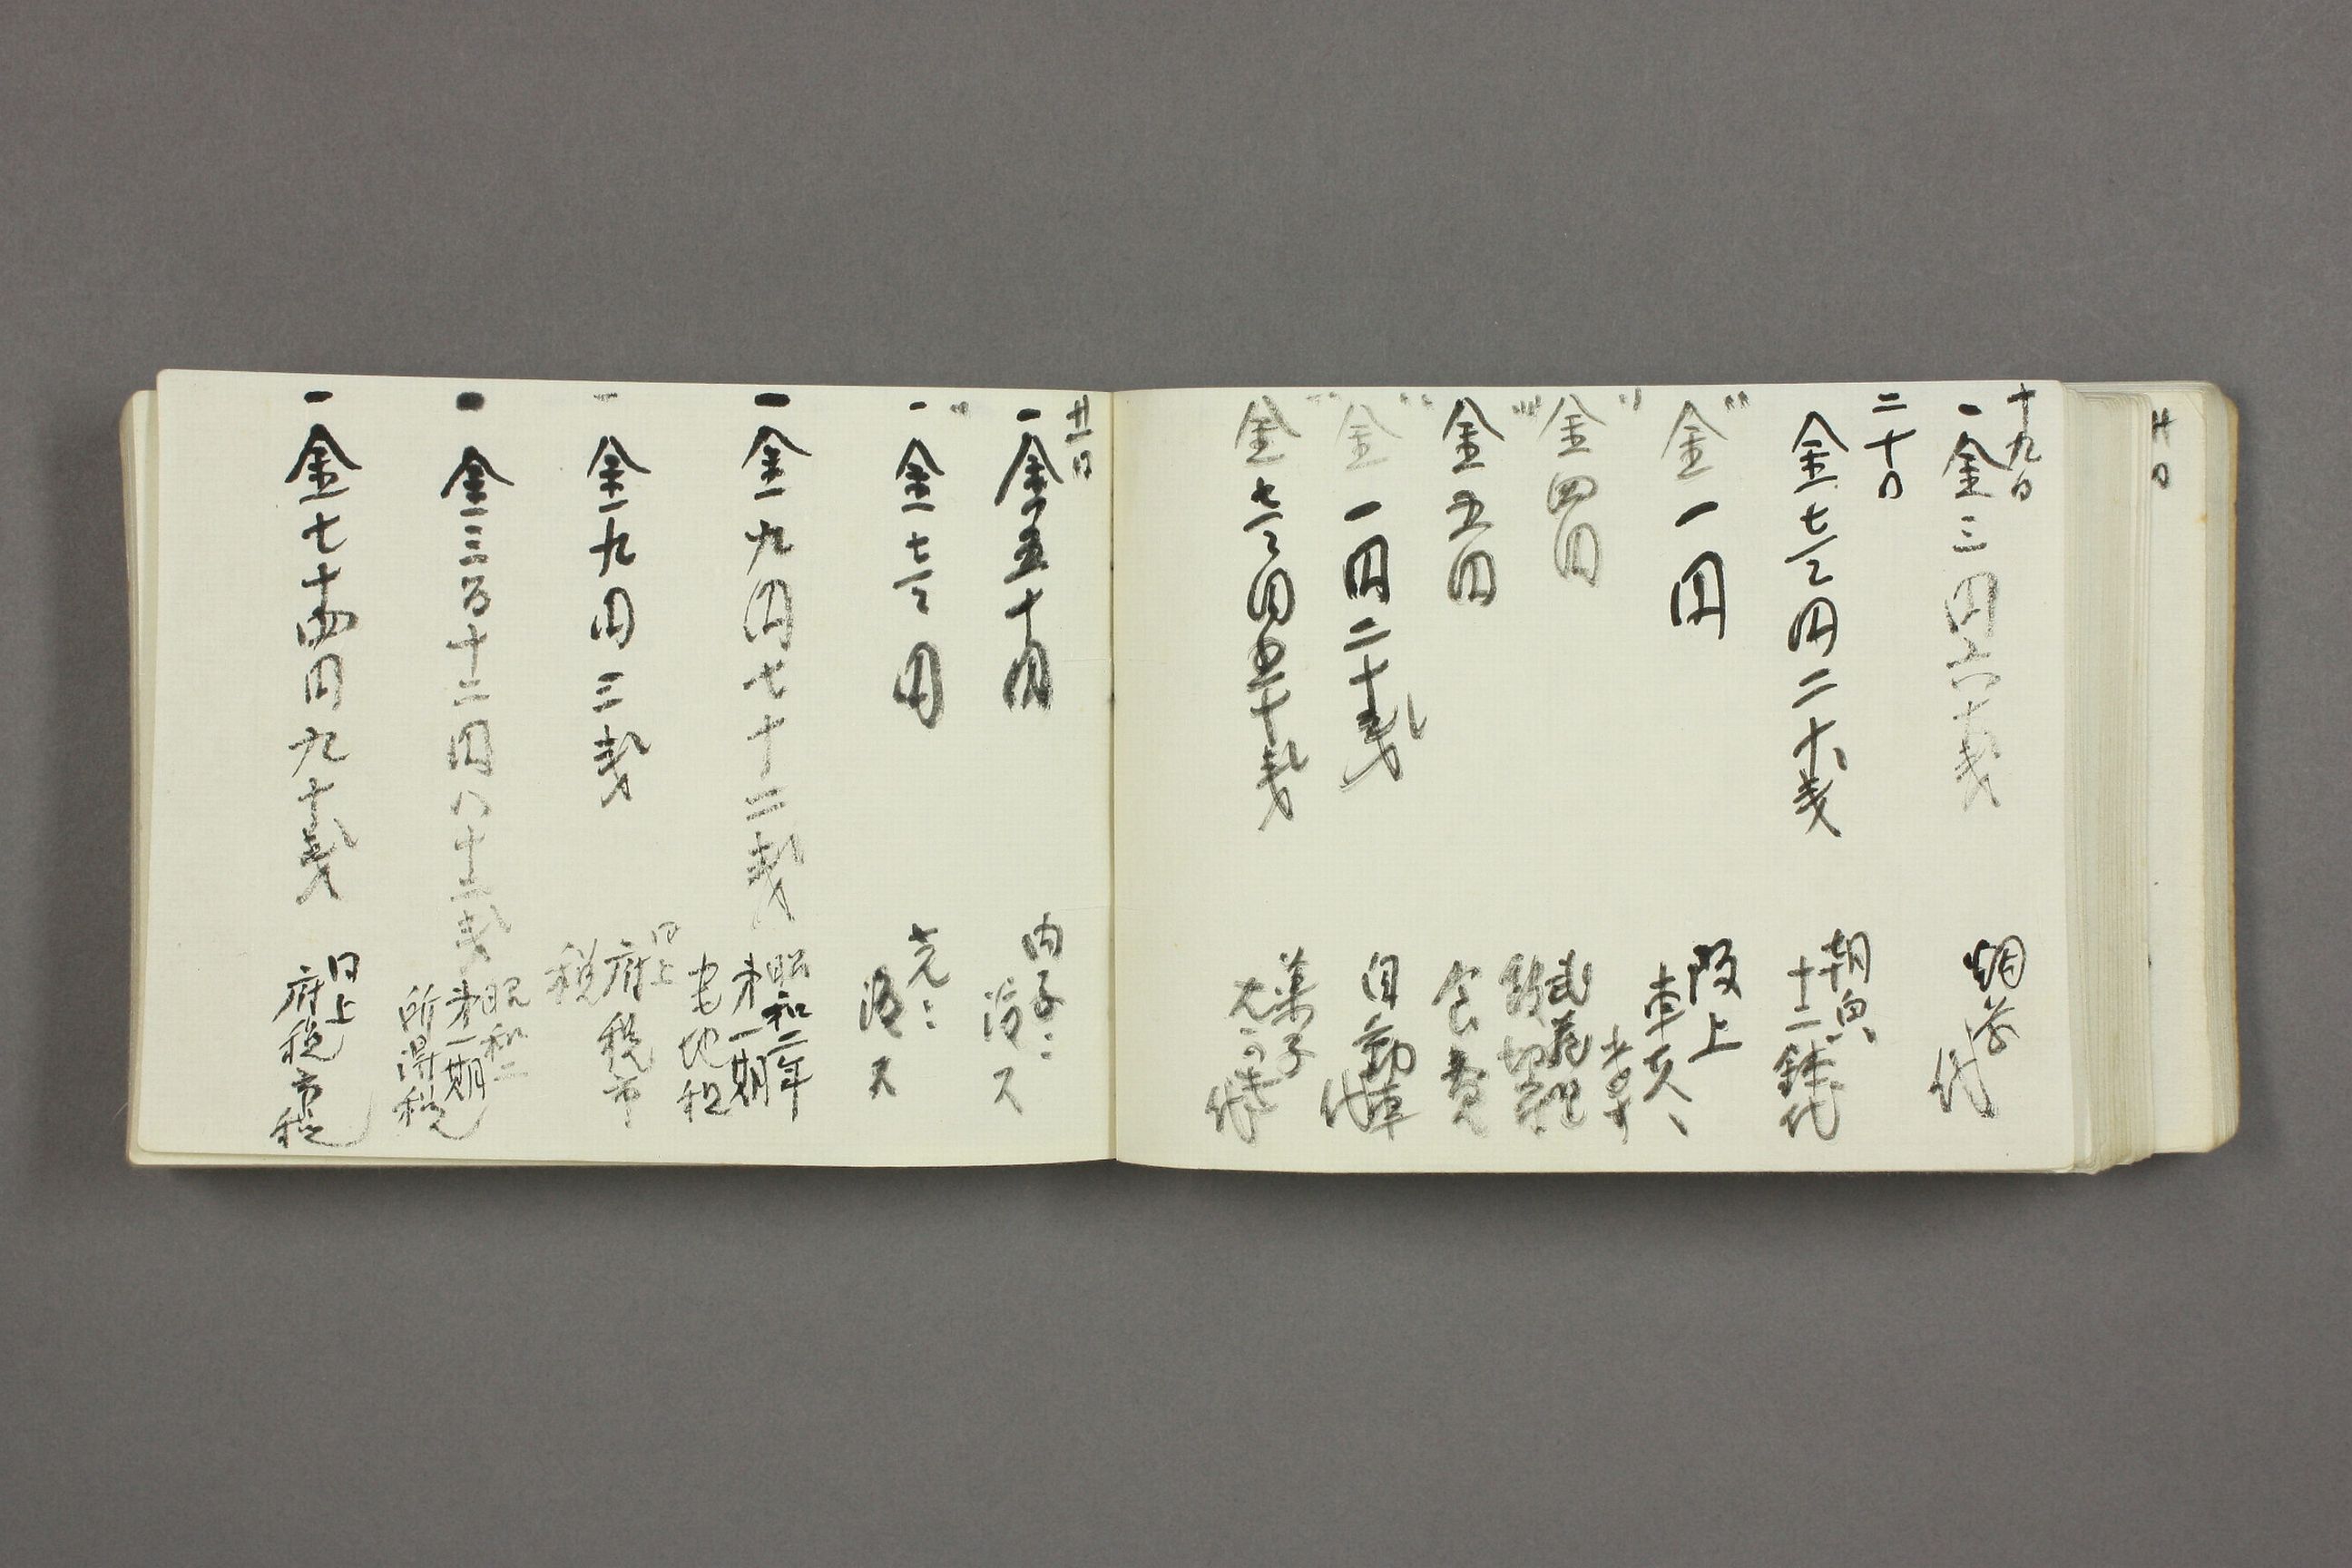 廿日
十九日
一金三円六十戋
煙草
代
二十日
金七円二十戋
朝
十二銭代
〃
金一円
阪上
車夫へ
〃
金四円
〃
金五円
食費
〃
金一円二十戋
自動車
代
〃
金七円五十戋
菓子
代
廿一日
一金五十円
内子ニ
渡ス
〃
一金七円
七元ニ
渡ス
一金九円七十二戋
昭和二年
第一期
宅地租
一金九円三戋
同上
府税市
税
一金三百十二円八十二戋
昭和二
第一期
所得税
一金七十四円九十戋
同上
府税市税